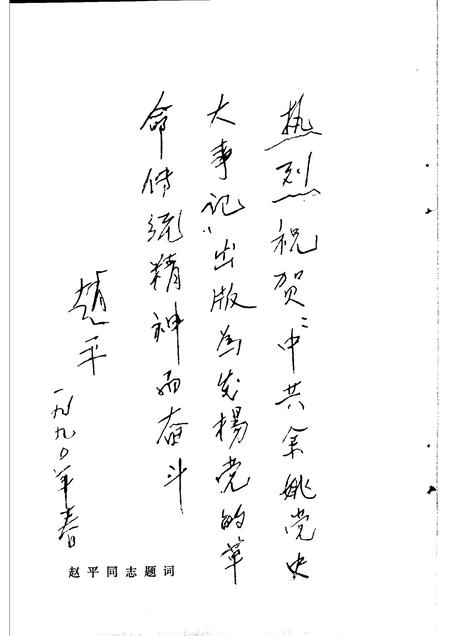 热烈祝贺“中共余姚党史
大事记”出版为发楊党的革
命传统精神而奋斗
趙平
一九九〇年春
赵平同志题词